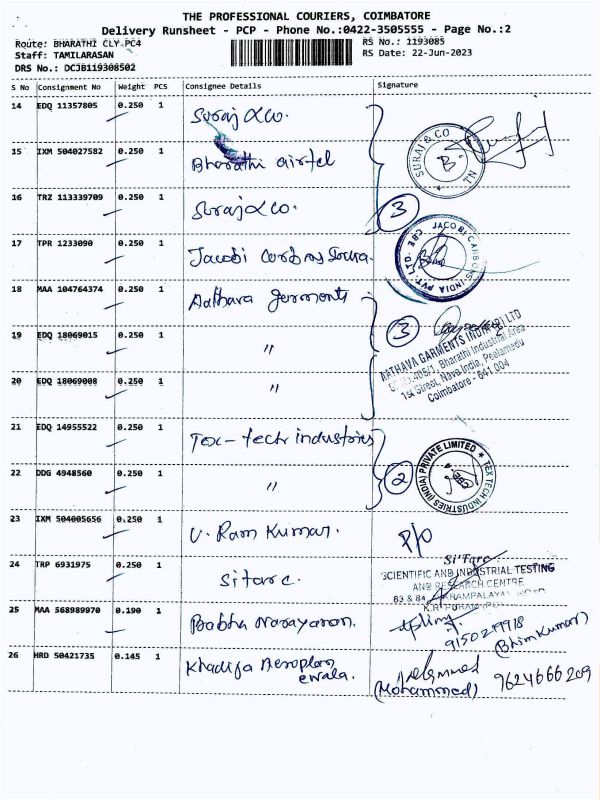 THE PROFESSIONAL COURIERS, COIMBATORE
Delivery Runsheet - PCP - Phone No.:0422-3505555 - Page No.:2
Route: BHARATHI CLY PC4
RS No.: 1193085
Staff: TAMILARASAN
RS Date: 22-Jun-2023
DRS No.: DCJB119308502
S No Consignment No Weight PCS Consignee Details Signature
14 EDQ 11357805 0.250 1 Suraj & Co.
SURAJ & CO
15 IXM 504027582 0.250 1 Bharathi airtel
16 TRZ 113339709 0.250 1 Suraj & Co. 3
17 TPR 1233090 0.250 1 Jacobi Carbons India.
JACOBI CARBONS INDIA PVT. LTD. CBE
18 MAA 104764374 0.250 1 Aathava garments
19 EDQ 18069015 0.250 1 〃 3
AATHAVA GARMENTS INDIA (P) LTD
Bharathi Industrial Area
1st Street, Nava India, Peelamedu
Coimbatore - 641 004
20 EDQ 18069008 0.250 1 〃
21 EDQ 14955522 0.250 1 Tex-tech industries
TEX TECH INDUSTRIES (INDIA) PRIVATE LIMITED
22 DDG 4948560 0.250 1 〃 2
23 IXM 504005656 0.250 1 V. Ram Kumar. P/O
24 TRP 6931975 0.250 1 Sitarc.
Si'Tarc
SCIENTIFIC AND INDUSTRIAL TESTING
AND RESEARCH CENTRE
83 & 84
25 MAA 568989970 0.190 1 Babha Narayanan.
(Bhim Kumar)
26 HRD 50421735 0.145 1 Khadija Aeroplan
ewala.
(Mohammed) 9624666209